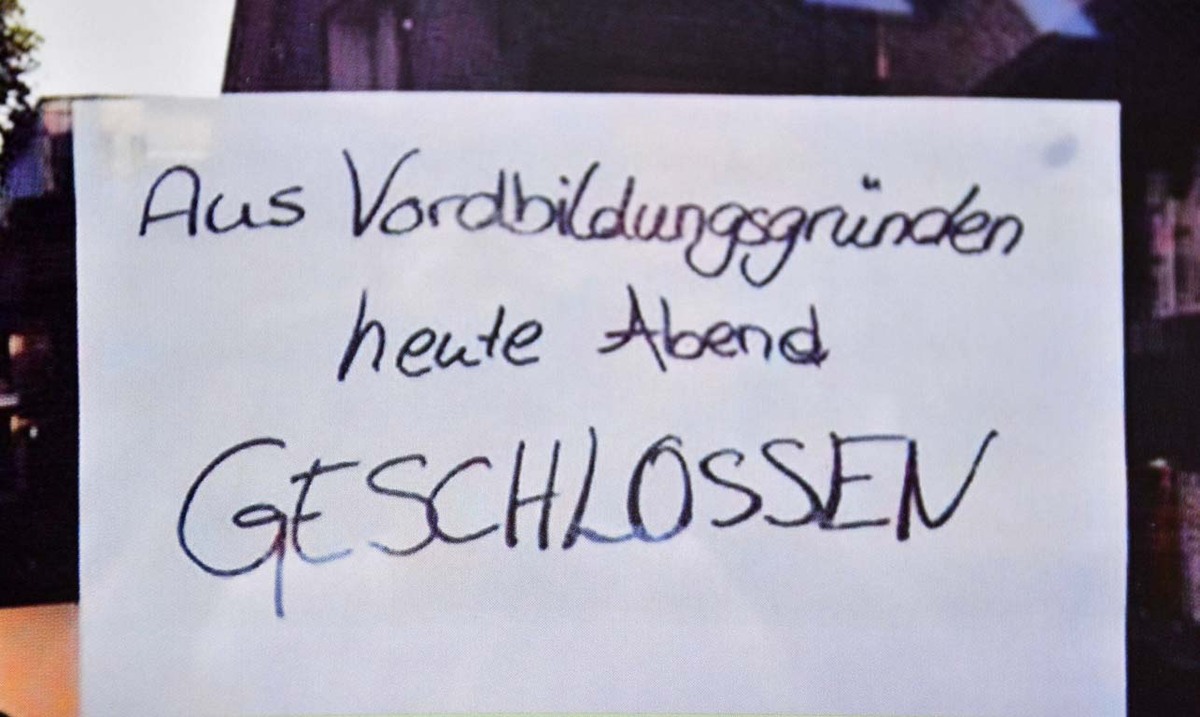 Aus Vordbildungsgründen
heute Abend
GESCHLOSSEN